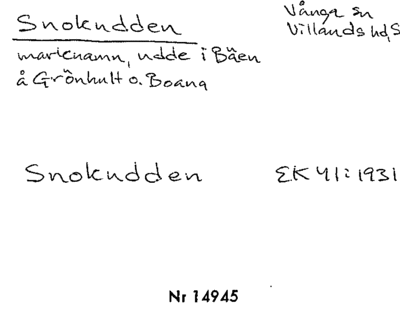 Snokudden
Vånga sn
Villands hd, S
marknamn, udde i Bäen
å Grönhult o. Boana
Snokudden
EK 41:1931
Nr 14945